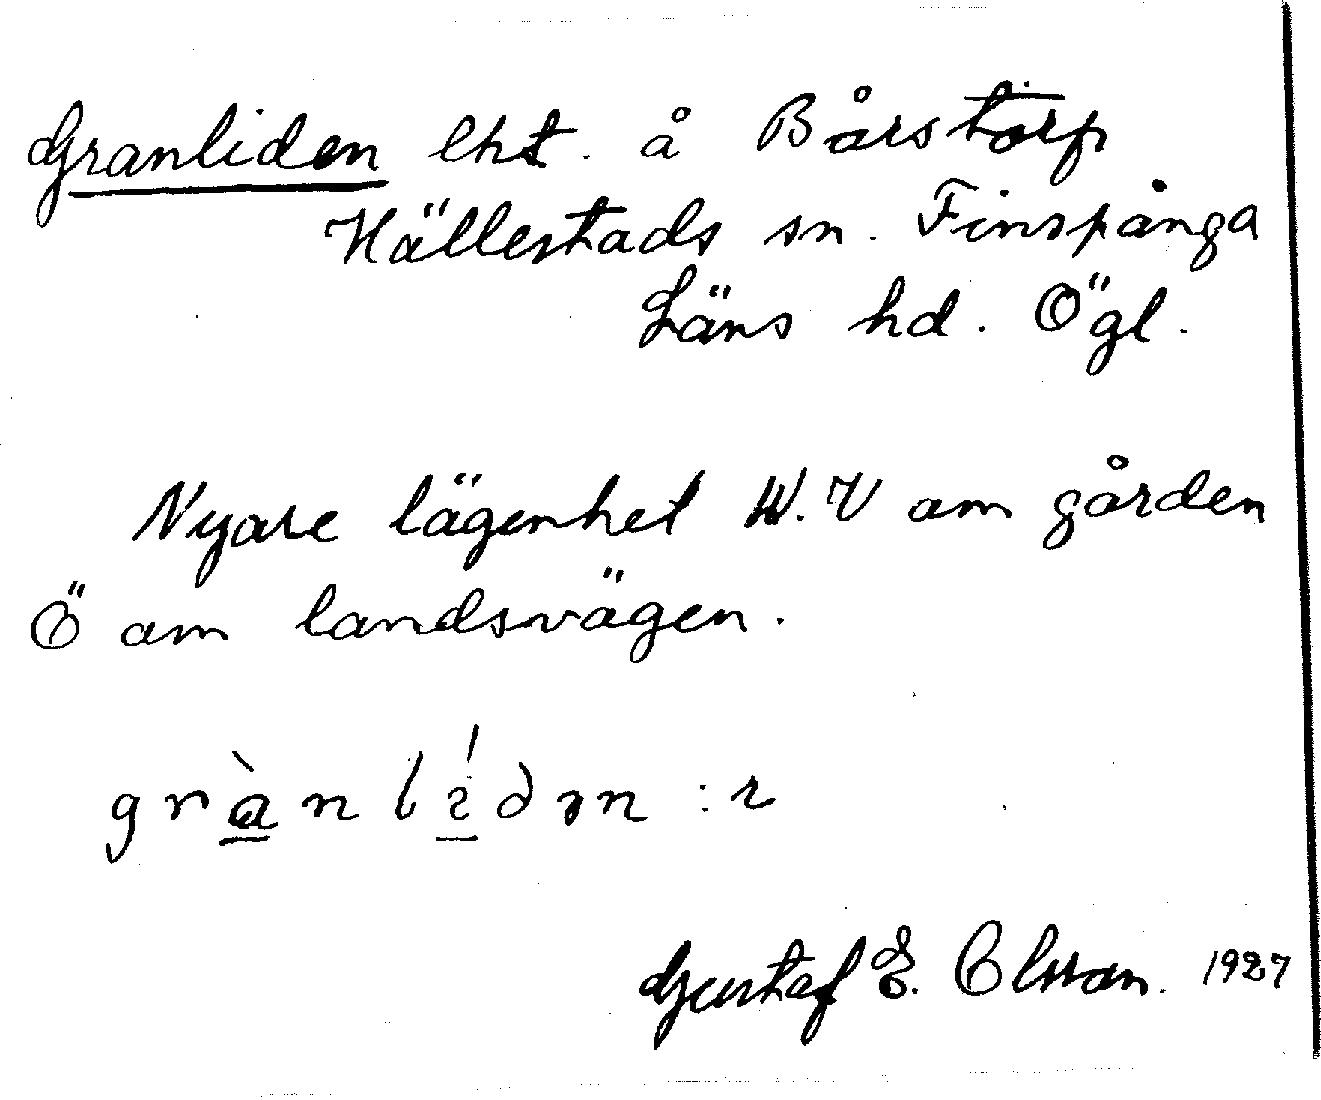 Granliden lht. å Bårstorp
Hällestads sn. Finspånga
Läns hd. Ögl.
Nyare lägenhet N.V om gården
Ö om landsvägen.
Gustaf E. Olsson. 1927